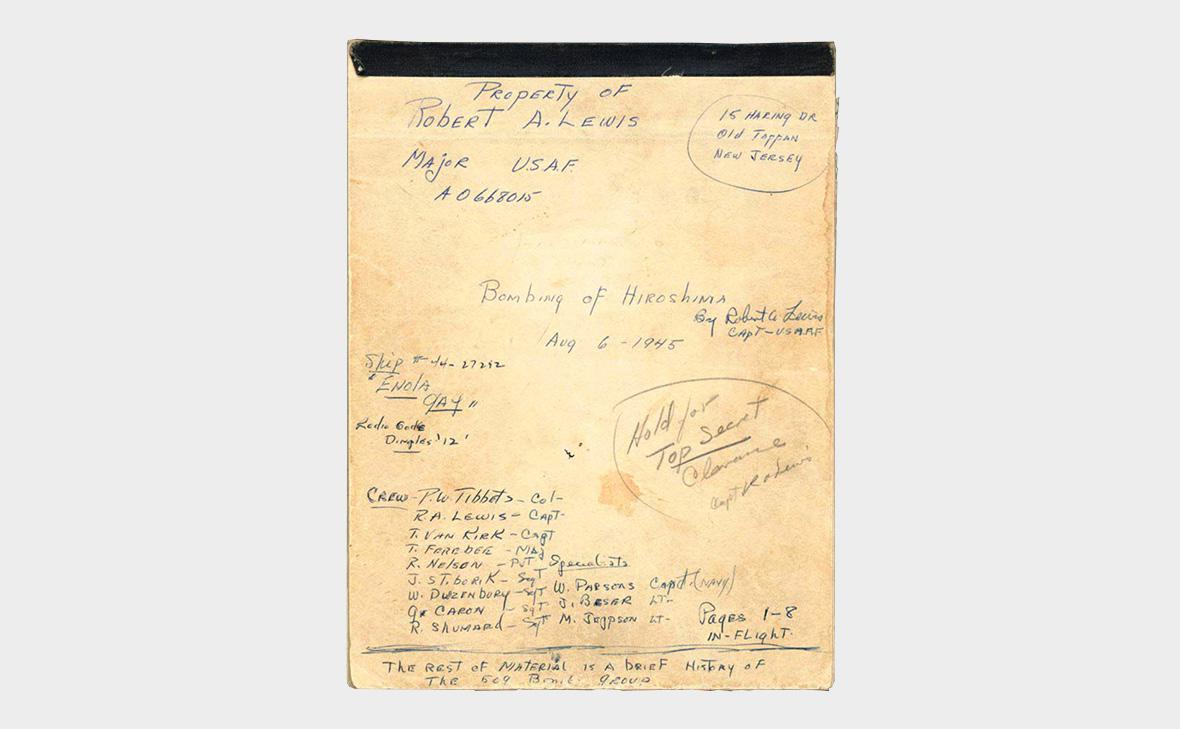 Property of
Robert A. Lewis
15 Haring Dr
Old Tappan
New Jersey
Major U.S.A.F.
AO668015
Bombing of Hiroshima
By Robert A. Lewis
Capt-USAAF
Aug 6 - 1945
Ship # 44-27292
"Enola
Gay"
Radio Code
Dimples '12'
Hold for
Top Secret
Clearance
Capt R A Lewis
Crew - P.W. Tibbets - Col-
R.A. Lewis - Capt-
T. Van Kirk - Capt
T. Ferebee - Maj
R. Nelson - Pvt Specialists
J. Stiborik - Sgt W. Parsons Capt (Navy)
W. Duzenbury - Sgt J. Beser Lt-
G. Caron - Sgt M. Jeppson Lt-
R. Shumard - Sgt
Pages 1-8
In-Flight.
The rest of material is a brief history of
The 509 Bomb. group